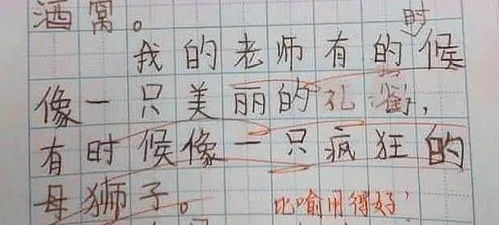 酒窝。
时
我的老师有的候
像一只美丽的孔
有时候像一只疯狂的
母狮子。
比喻用得好！